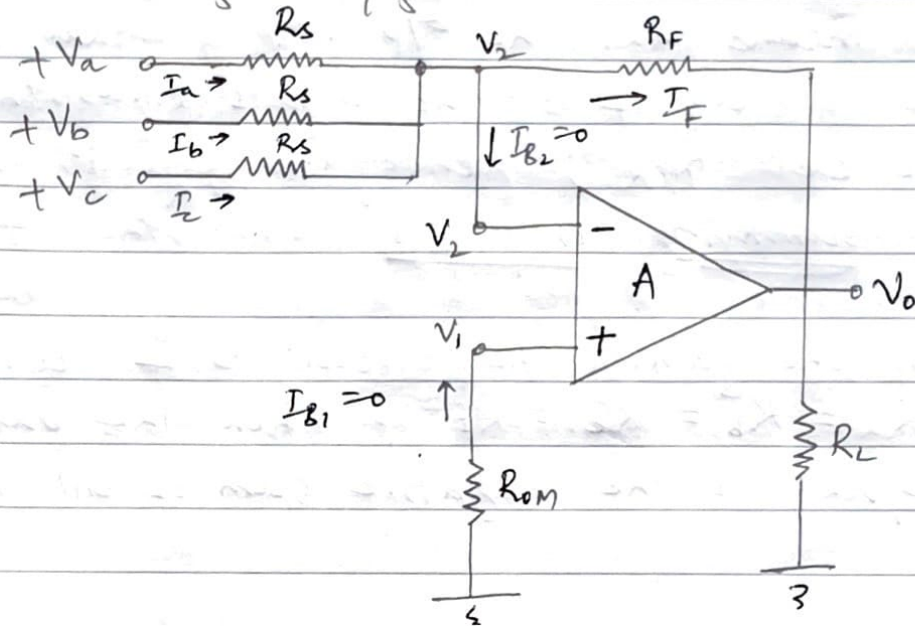 Rs
+Va
Ia →
Rs
+Vb
Ib →
Rs
+Vc
Ic →
V2
RF
→ IF
↓ IB2=0
V2
-
A
Vo
V1
+
IB1=0 ↑
ROM
RL